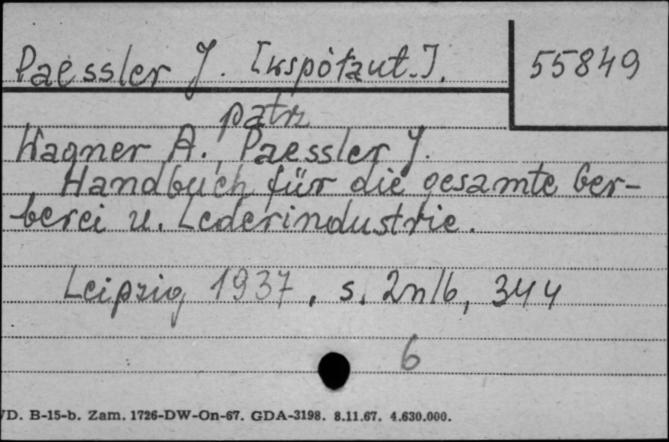 Paessler J. [współaut.].
55849
patrz
Wagner A., Paessler J.
Handbuch für die gesamte Ger-
berei u. Lederindustrie.
Leipzig 1937, s. 2nlb, 344
6
D. B-15-b. Zam. 1726-DW-On-67. GDA-3198. 8.11.67. 4.630.000.